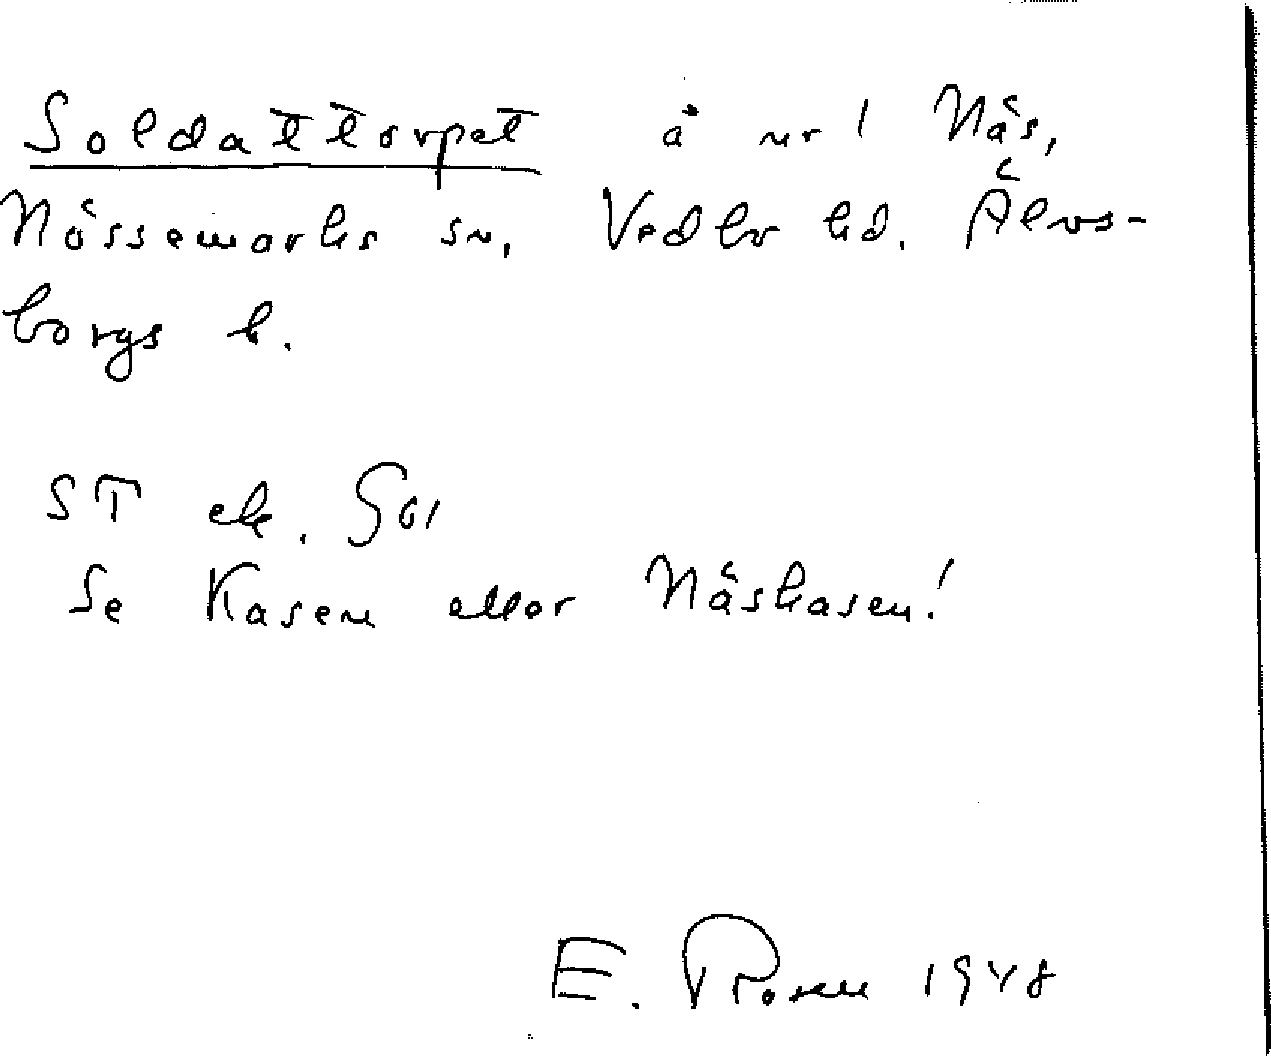 Soldattorpet å nr 1 Näs,
Nössemarks sn, Vedbo hd. Älvs-
borgs l.
ST ek. G61
Se Kasen eller Näskasen!
E. Rosen 1948